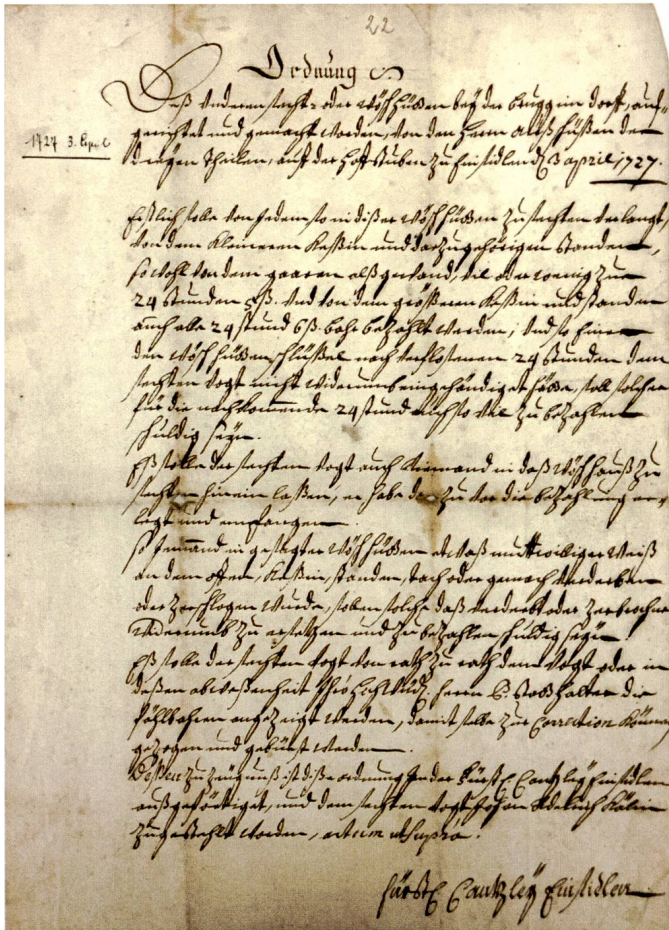 22
Ordnung
Deß Underen secht- oder wösch hußen bey der brugg im dorff, auf-
gerichtet und gemacht worden, von den Herrn Außschüßen der
dreyen Theilen, auff der hoff stuben zu Einsidlen d. 3 april 1727.
1727 3. April
Erstlich solle von jedem so in diser wösch hußen zu sechten verlangt,
von dem kleineren keßin und darzu gehörigen standen,
so wohl von dem gaaren alß gewand, vil oder wenig zur
24 stunden ß. und von dem grösseren keßin und standen
auch alle 24 stund 6 ß. bahr bezahlt werden, und so einer
den wösch hußen schlüßel nach verfloßenen 24 stunden dem
sechten vogt nicht widerumb eingehändiget hätte, soll solcher
für die nachkommende 24 stund auch so vil zu bezahlen
schuldig seyn.
Eß solle der sechten vogt auch niemand in daß wösch hauß zu
sechten hinein laßen, er habe dan zu vor die bezahlung er-
legt und empfangen.
So jemand in gesagter wösch hußen etwaß muttwilliger weiß
an dem offen, keßin, standen, tach oder gemach verderben
oder zerschlagen wurde, sollen solche daß verderbt oder zerbrochne
widerumb zu ersetzen und zu bezahlen schuldig seyn.
Eß solle der sechten vogt von rath zu rath dem vogt oder in
deßen abweßenheit Ihro hochwürd. herrn statthalter die
fählbahren angezeigt werden, damit selbe zur Correction können
gezogen und gebüest werden.
Deßen zu zeügnuß ist dise ordnung in der Fürstl. Cantzley Einsidlen
außgefertiget, und dem sechten vogt Kälin
zugestehlt worden, actum ut supra.
Fürstl. Cantzley Einsidlen